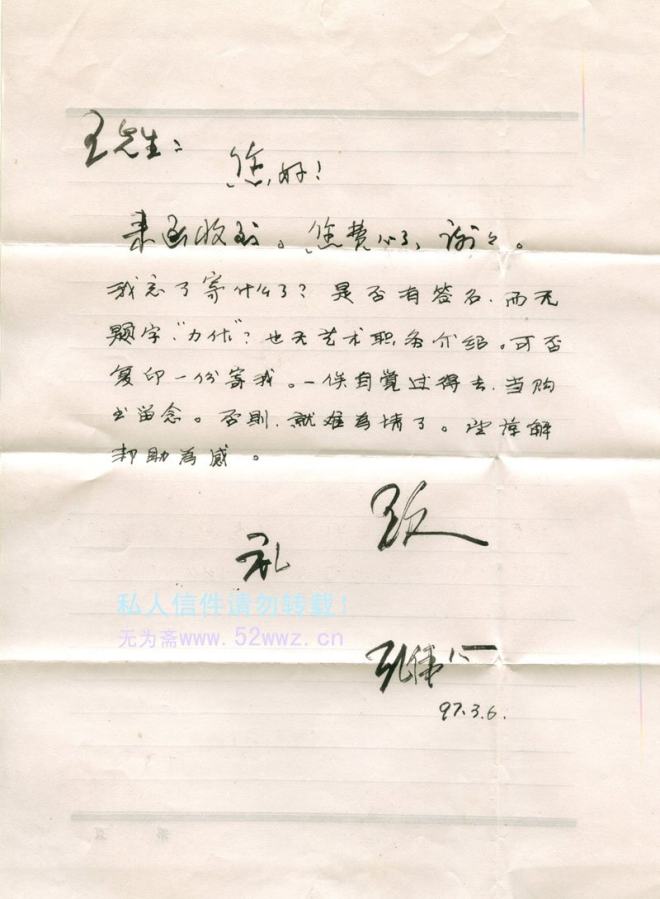 王先生：
您好！
来函收到。您费心了，谢々。
我忘了寄什么了？是否有签名，而无
题字“力作”？也无艺术职务介绍。可否
复印一份寄我。一俟自觉过得去，当购
以留念。否则，就难为情了。望谅解
帮助为感。
致
礼
私人信件请勿转载！
无为斋www.52wwz.cn
97.3.6.